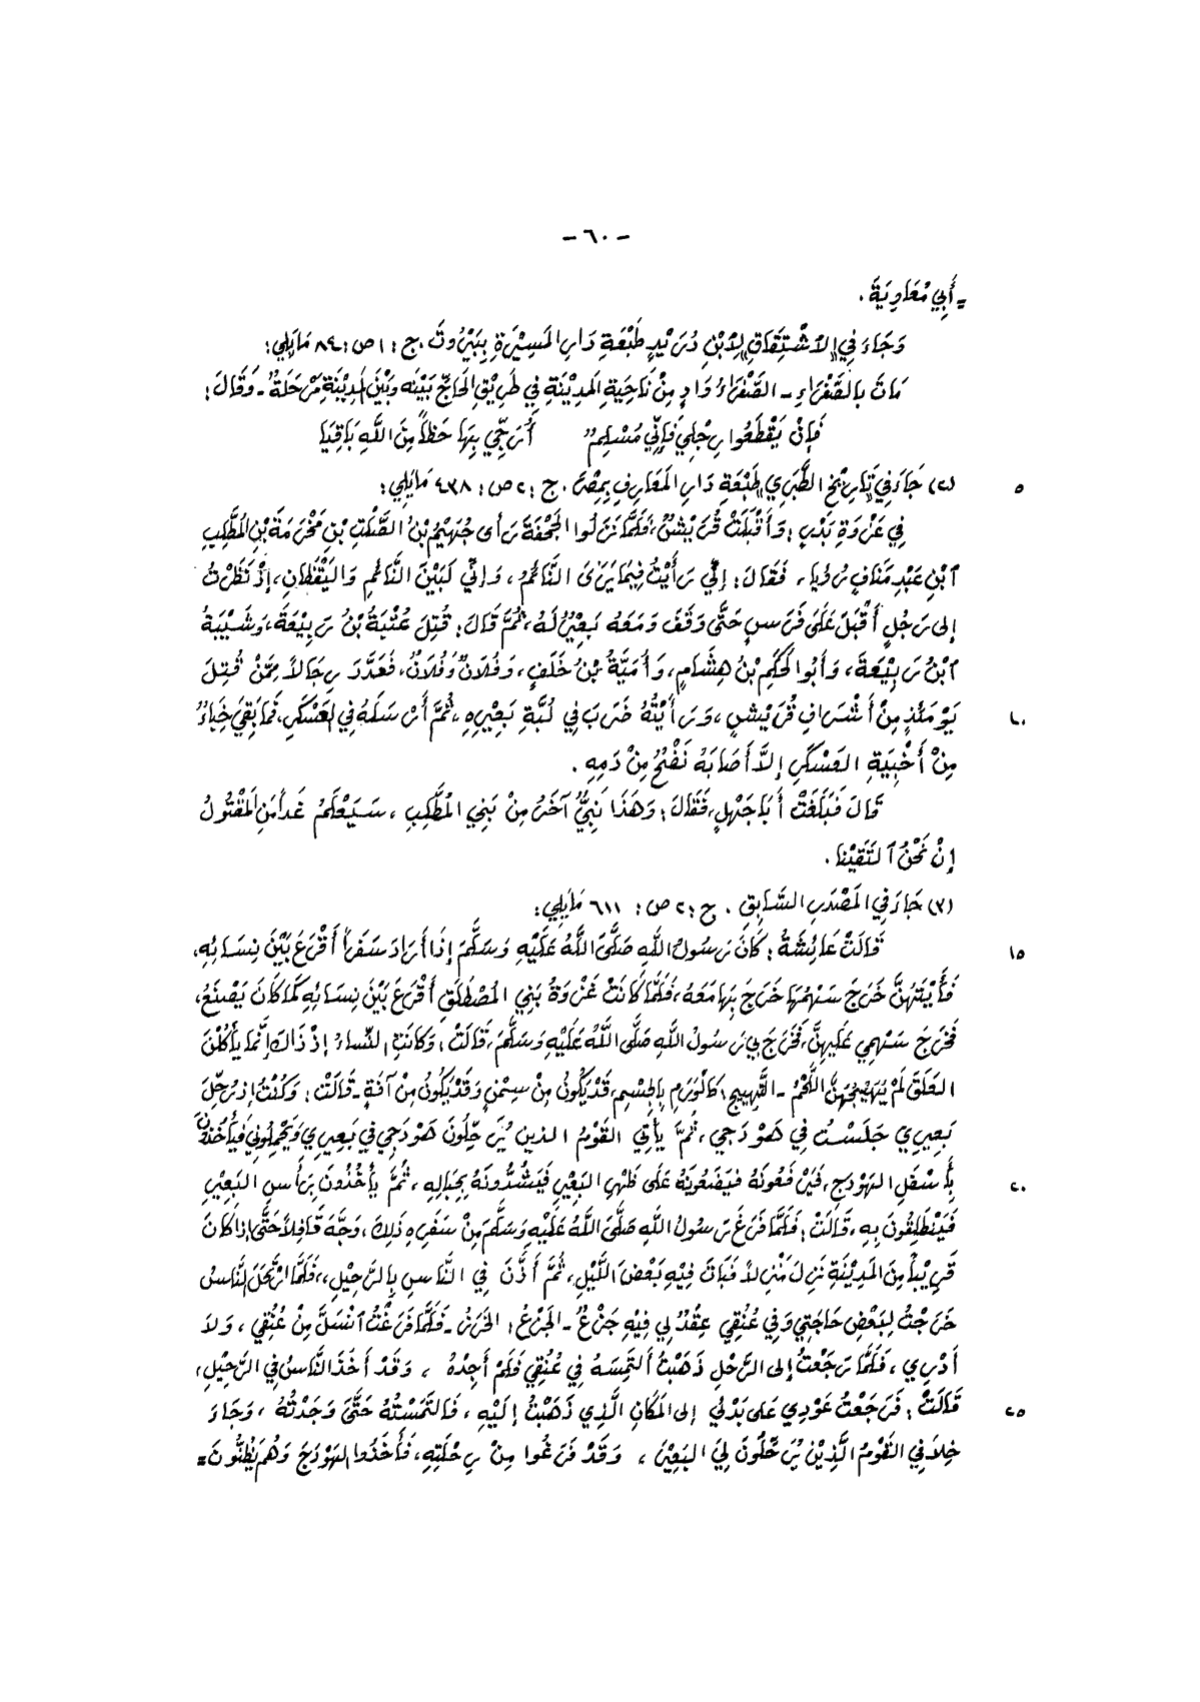 - ٦٠ -
= أَبِي مُعَاوِيَةَ .
وَجَاءَ فِي الاشْتِقَاقِ لِابْنِ دُرَيْدٍ طَبْعَةِ دَارِ المَسِيْرَةِ بِبَيْرُوتَ . ج : ١ ص : ٨٤ مَايَلِي :
مَاتَ بِالصَّفْرَاءِ - الصَّفْرَاءُ وَادٍ مِنْ نَاحِيَةِ المَدِيْنَةِ فِي طَرِيْقِ الحَاجِّ بَيْنَه وَبَيْنَ المَدِيْنَةِ مَرْحَلَةٌ - وَقَالَ :
فَإِنْ يَقْطَعُوا رِجْلِي فَإِنِّي مُسْلِمٌ أُرَجِّي بِهَا حَظاً مِنَ اللَّهِ بَاقِيَا
٥ (٢) جَاءَ فِي تَارِيْخِ الطَّبَرِي طَبْعَةِ دَارِ المَعَارِفِ بِمِصْرَ . ج : ٢ ص : ٤٣٨ مَايَلِي :
فِي غَزْوَةِ بَدْرٍ : وَأَقْبَلَتْ قُرَيْشٌ ، فَلَمَّا نَزَلُوا الجُحْفَةَ رَأَى جُهَيْمُ بْنُ الصَّلْتِ بْنِ مَخْرَمَةَ بْنِ المُطَّلِبِ
ٱبْنِ عَبْدِ مَنَافٍ رُؤْيَا ، فَقَالَ : إِنِّي رَأَيْتُ فِيمَا يَرَى النَّائِمُ ، وَإِنِّي لَبَيْنَ النَّائِمِ وَاليَقْظَانِ ، إِذْ نَظَرْتُ
إِلى رَجُلٍ أَقْبَلَ عَلَى فَرَسٍ حَتَّى وَقَفَ وَمَعَهُ بَعِيْرٌ لَهُ ، ثُمَّ قَالَ : قُتِلَ عُتْبَةُ بْنُ رَبِيْعَةَ ، وَشَيْبَةُ
ٱبْنُ رَبِيْعَةَ ، وَأَبُو الحَكَمِ بْنُ هِشَامٍ ، وَأُمَيَّةُ بْنُ خَلَفٍ ، وَفُلَانٌ وَفُلَانٌ ، فَعَدَّدَ رِجَالاً مِمَّنْ قُتِلَ
١٠ يَوْمَئِذٍ مِنْ أَشْرَافِ قُرَيْشٍ ، وَرَأَيْتُهُ ضَرَبَ فِي لَبَّةِ بَعِيْرِهِ ، ثُمَّ أَرْسَلَهُ فِي العَسْكَرِ ، فَمَا بَقِيَ خِبَاءٌ
مِنْ أَخْبِيَةِ العَسْكَرِ إِلاَّ أَصَابَهُ نَضْحٌ مِنْ دَمِهِ .
قَالَ فَبَلَغَتْ أَبَا جَهْلٍ ، فَقَالَ : وَهَذَا نَبِيٌّ آخَرُ مِنْ بَنِي المُطَّلِبِ ، سَيَعْلَمُ غَداً مَنِ المَقْتُولُ
إِنْ نَحْنُ ٱلتَقَيْنَا .
(٣) جَاءَ فِي المَصْدَرِ السَّابِقِ . ج : ٢ ص : ٦١١ مَايَلِي :
١٥ قَالَتْ عَائِشَةُ : كَانَ رَسُولُ اللَّهِ صَلَّى اللَّهُ عَلَيْهِ وَسَلَّمَ إِذَا أَرَادَ سَفَراً أَقْرَعَ بَيْنَ نِسَائِهِ ،
فَأَيَّتُهُنَّ خَرَجَ سَهْمُهَا خَرَجَ بِهَا مَعَهُ ، فَلَمَّا كَانَتْ غَزْوَةُ بَنِي المُصْطَلَقِ أَقْرَعَ بَيْنَ نِسَائِهِ كَمَا كَانَ يَصْنَعُ ،
فَخَرَجَ سَهْمِي عَلَيْهِنَّ ، فَخَرَجَ بِي رَسُولُ اللَّهِ صَلَّى اللَّهُ عَلَيْهِ وَسَلَّمَ ، قَالَتْ : وَكَانَتِ النِّسَاءُ إِذْ ذَاكَ إِنَّمَا يَأْكُلْنَ
العَلَقَ لَمْ يُهَيِّجْهُنَّ اللَّحْمُ - التَّهْيِيج : كَالوَرَمِ بِالجِسْمِ ، قَدْ يَكُونُ مِنْ سِمْنٍ وَقَدْ يَكُونُ مِنْ آفَةٍ - قَالَتْ : وَكُنْتُ إِذَا رُحِّلَ
بَعِيرِي جَلَسْتُ فِي هَوْدَجِي ، ثُمَّ يَأْتِي القَوْمُ الذين يُرَحِّلُونَ هَوْدَجِي فِي بَعِيرِي وَيَحْمِلُونِي فَيَأْخُذُونَ
٢٠ بِأَسْفَلِ الهَوْدَجِ ، فَيَرْفَعُونَهُ فَيَضَعُونَهُ عَلَى ظَهْرِ البَعِيْرِ فَيَشُدُّونَهُ بِحِبَالِهِ ، ثُمَّ يَأْخُذُونَ بِرَأْسِ البَعِيْرِ
فَيَنْطَلِقُونَ بِهِ ، قَالَتْ : فَلَمَّا فَرَغَ رَسُولُ اللَّهِ صَلَّى اللَّهُ عَلَيْهِ وَسَلَّمَ مِنْ سَفَرِهِ ذَلِكَ ، وَجَّهَ قَافِلاً حَتَّى إِذَا كَانَ
قَرِيْباً مِنَ المَدِيْنَةِ نَزَلَ مَنْزِلاً فَبَاتَ فِيْهِ بَعْضَ اللَّيْلِ ، ثُمَّ أَذَّنَ فِي النَّاسِ بِالرَّحِيْلِ ، فَلَمَّا ارْتَحَلَ النَّاسُ
خَرَجْتُ لِبَعْضِ حَاجَتِي وَفِي عُنُقِي عِقْدٌ لِي فِيْهِ جَزْعٌ - الجَزْعُ : الخَرَزُ - فَلَمَّا فَرَغْتُ ٱنْسَلَّ مِنْ عُنُقِي ، وَلَا
أَدْرِي ، فَلَمَّا رَجَعْتُ إِلى الرَّحْلِ ذَهَبْتُ أَلتَمِسُهُ فِي عُنُقِي فَلَمْ أَجِدْهُ ، وَقَدْ أَخَذَ النَّاسُ فِي الرَّحِيْلِ ،
٢٥ قَالَتْ : فَرَجَعْتُ عَوْدِي عَلَى بَدْئِي إِلى المَكَانِ الَّذِي ذَهَبْتُ إِلَيْهِ ، فَالتَمَسْتُهُ حَتَّى وَجَدْتُهُ ، وَجَاءَ
خِلَافِي القَوْمُ الَّذِيْنَ يُرَحِّلُونَ لِيَ البَعِيْرَ ، وَقَدْ فَرَغُوا مِنْ رِحْلَتِهِ ، فَأَخَذُوا الهَوْدَجَ وَهُمْ يَظُنُّونَ =